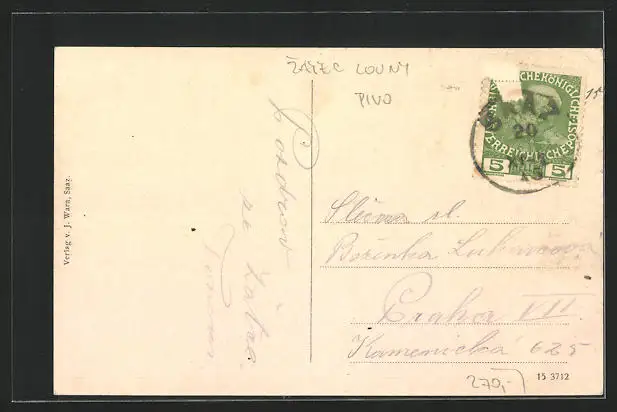 ŽATEC LOUNY
PIVO
15
KAISERLICHE KÖNIGLICHE
ÖSTERREICHISCHE POST
5 5
SAAZ
20
15
Verlag v. J. Wara, Saaz.
Pozdrav
ze Žatce
Slečna sl.
Boženka Lukášova
Praha VII
Kamenická 625
270,-
15 3712